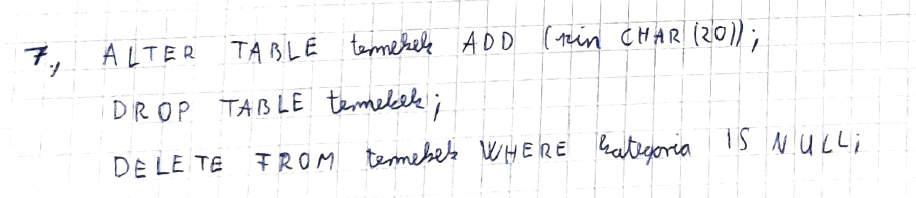 7., ALTER TABLE termekek ADD (szin CHAR(20));
DROP TABLE termekek;
DELETE FROM termekek WHERE kategoria IS NULL;